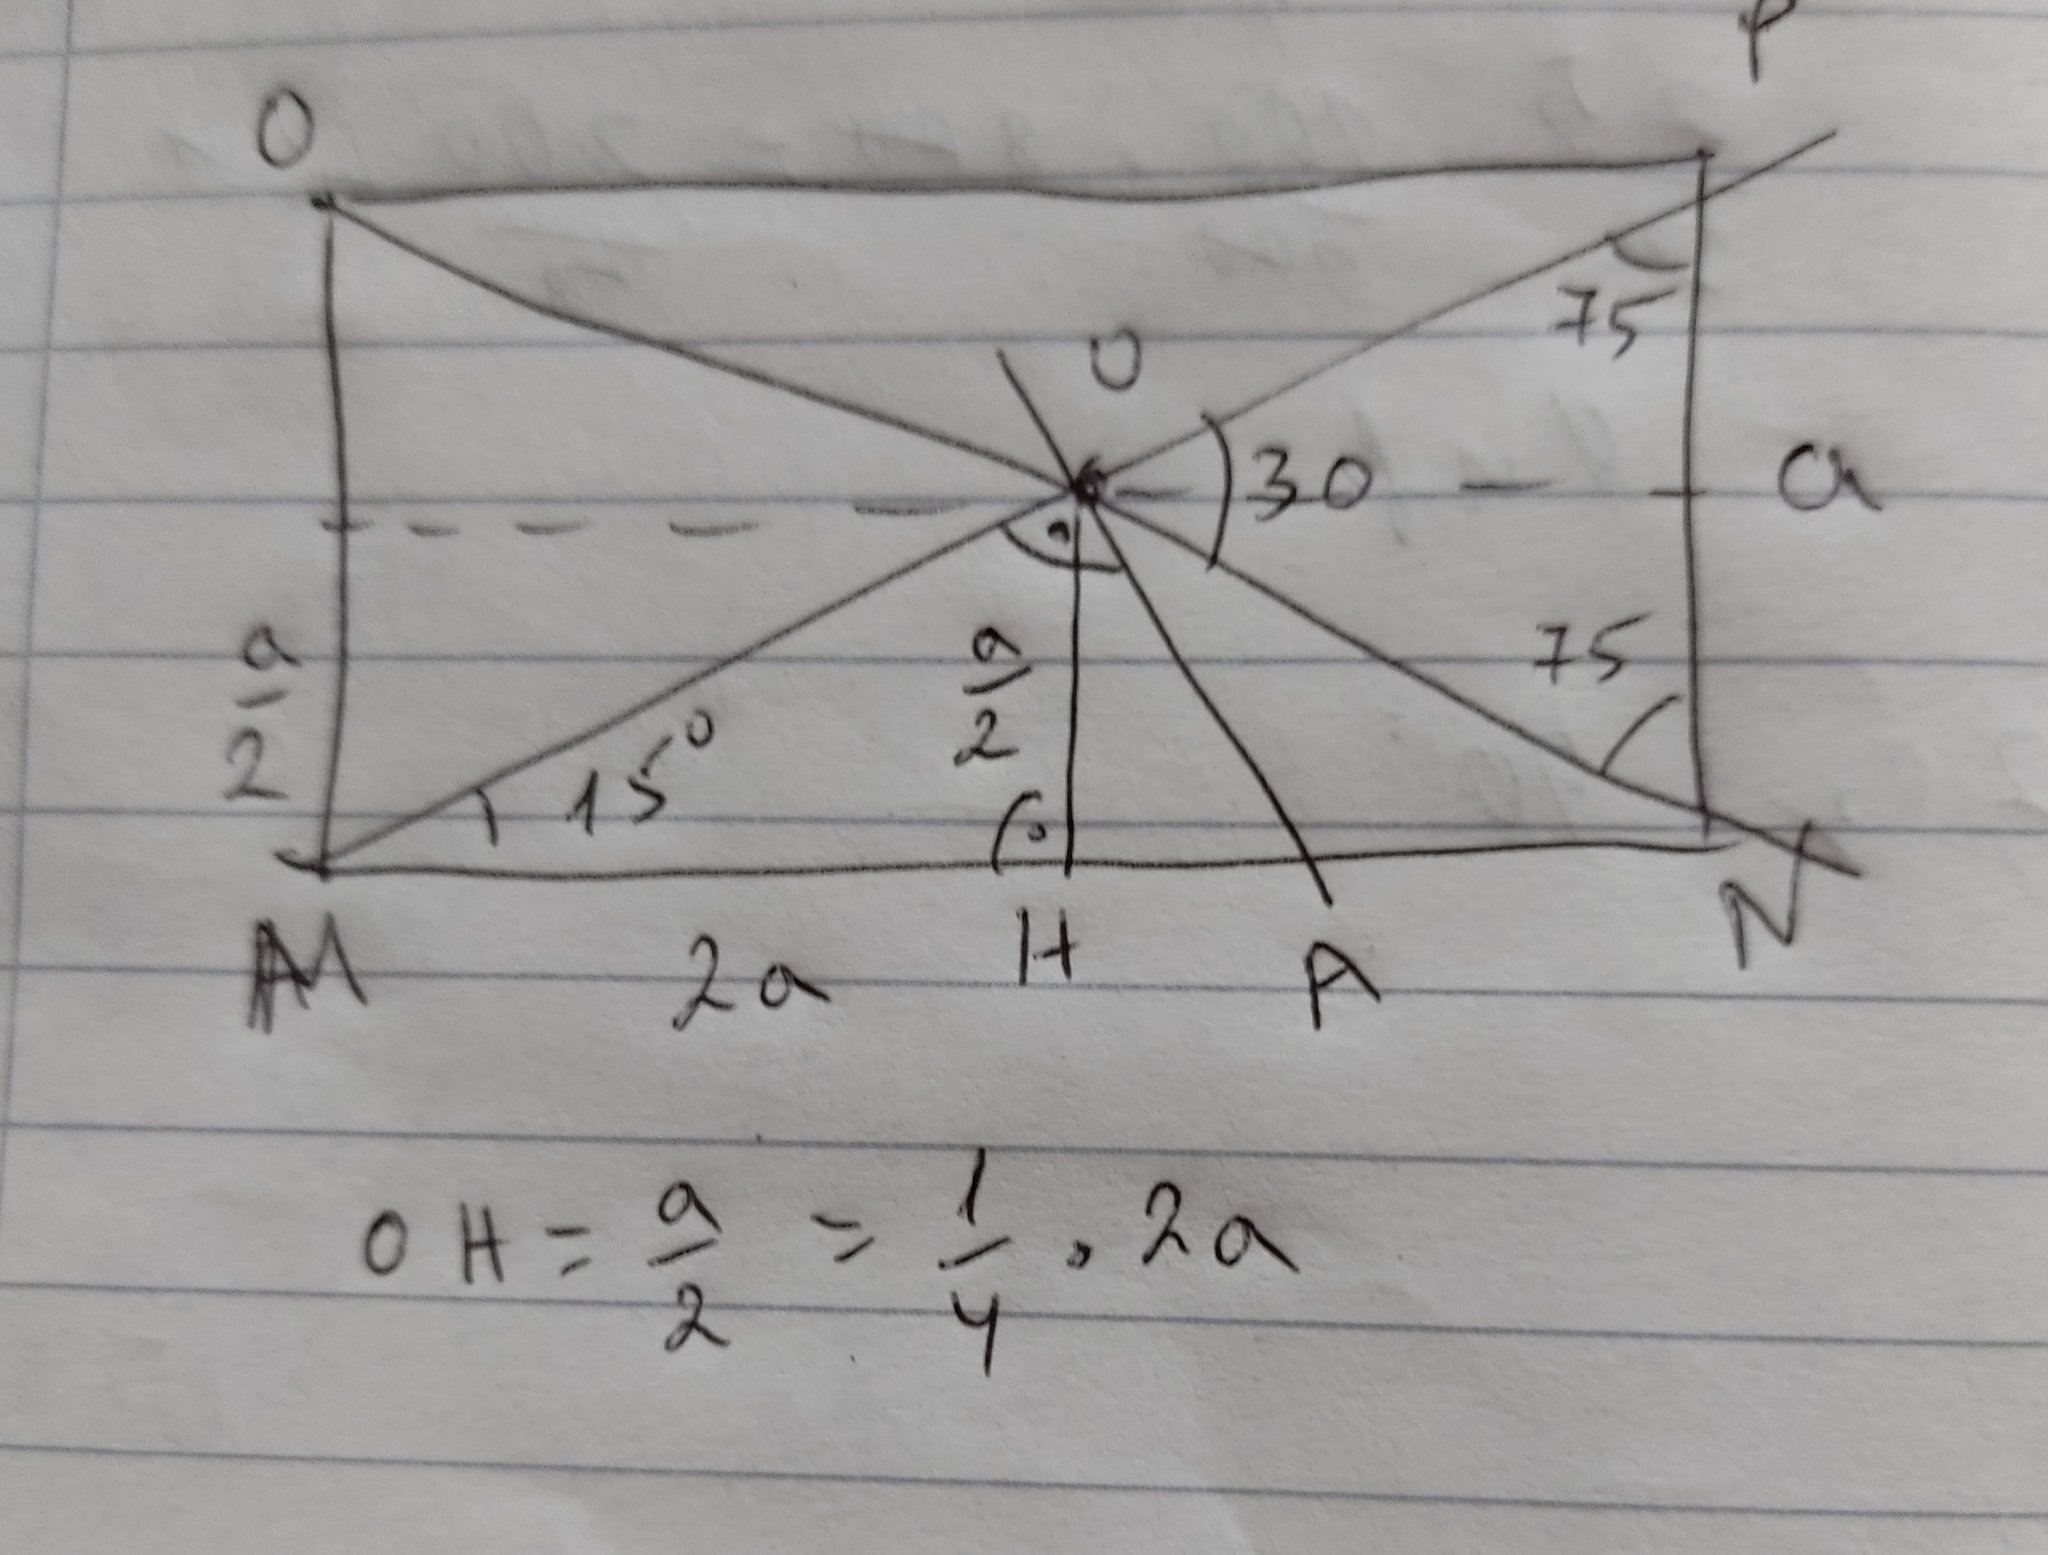 P
O
75
O
30
a
a
2
a
2
75
15°
M
2a
H
A
N
OH = a/2 = 1/4 . 2a